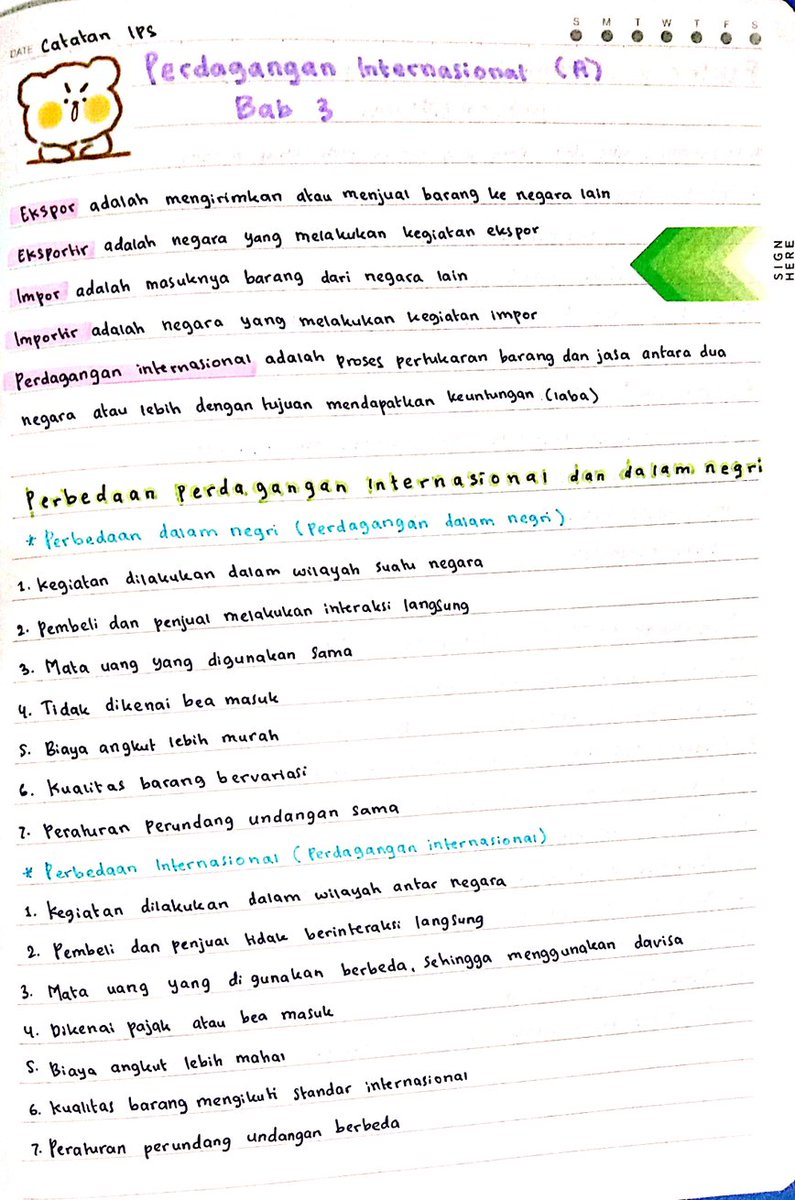 S M T W T F S
DATE Catatan IPS
Perdagangan Internasional (A)
Bab 3
Ekspor adalah mengirimkan atau menjual barang ke negara lain
Eksportir adalah negara yang melakukan kegiatan ekspor
SIGN HERE
Impor adalah masuknya barang dari negara lain
Importir adalah negara yang melakukan kegiatan impor
Perdagangan internasional adalah proses pertukaran barang dan jasa antara dua
negara atau lebih dengan tujuan mendapatkan keuntungan (laba)
Perbedaan Perdagangan Internasional dan dalam negri
* Perbedaan dalam negri (Perdagangan dalam negri)
1. Kegiatan dilakukan dalam wilayah suatu negara
2. Pembeli dan penjual melakukan interaksi langsung
3. Mata uang yang digunakan sama
4. Tidak dikenai bea masuk
5. Biaya angkut lebih murah
6. Kualitas barang bervariasi
7. Peraturan perundang undangan sama
* Perbedaan Internasional (Perdagangan internasional)
1. Kegiatan dilakukan dalam wilayah antar negara
2. Pembeli dan penjual tidak berinteraksi langsung
3. Mata uang yang di gunakan berbeda, sehingga menggunakan davisa
4. Dikenai pajak atau bea masuk
5. Biaya angkut lebih mahal
6. Kualitas barang mengikuti standar internasional
7. Peraturan perundang undangan berbeda